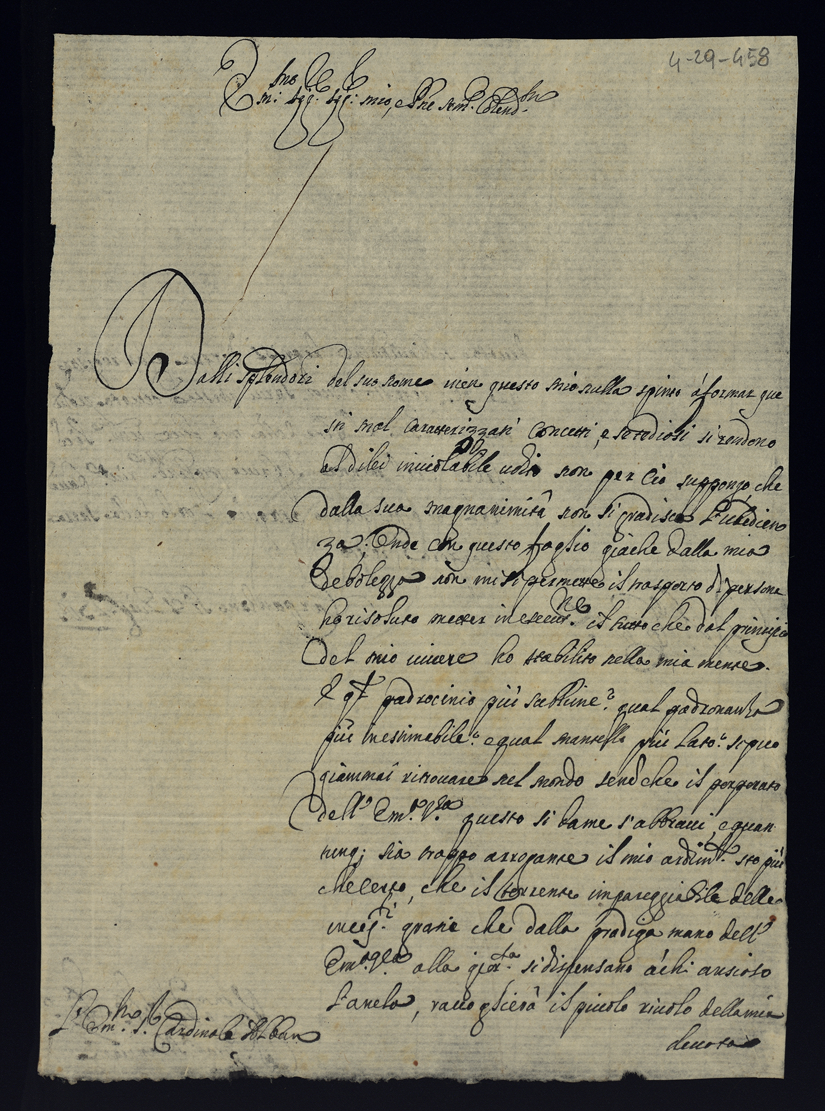 4-29-458
Em.mo Sig.r Sig.r mio, e Pne semp. Colend.mo
Dalli splendori del suo nome vien questo mio nulla spinto á formar que
sti mal caratterizzati concetti, e
al di lei inviolabile udito non per ciò suppongo che
dalla sua magnanimità non si gradisca l'ubidien
za. Onde con questo foglio giache dalla mia
debolezza non mi si permette il trasporto di persona
ho risoluto metter in esecut.ne il tutto che dal principio
del mio vivere ho stabilito nella mia mente.
E q.l padrocinio più sublime? qual padronanza
più inestimabile? e qual mantello più lato? si può
giammai ritrovare nel mondo senon che il porporato
dell' Em.a V.ra questo si bame s'abbracci, e quan
tunq; sia troppo arrogante il mio ardim.to sto più
che certo, che il torrente impareggiabile delle
grazie che dalla prodiga mano dell'
Em.a V.ra alla si dispensano à chi ansioso
l'anela, raccoglierà il picolo rivolo della mia
devota
S.r Em.mo S.r Cardinale Albani